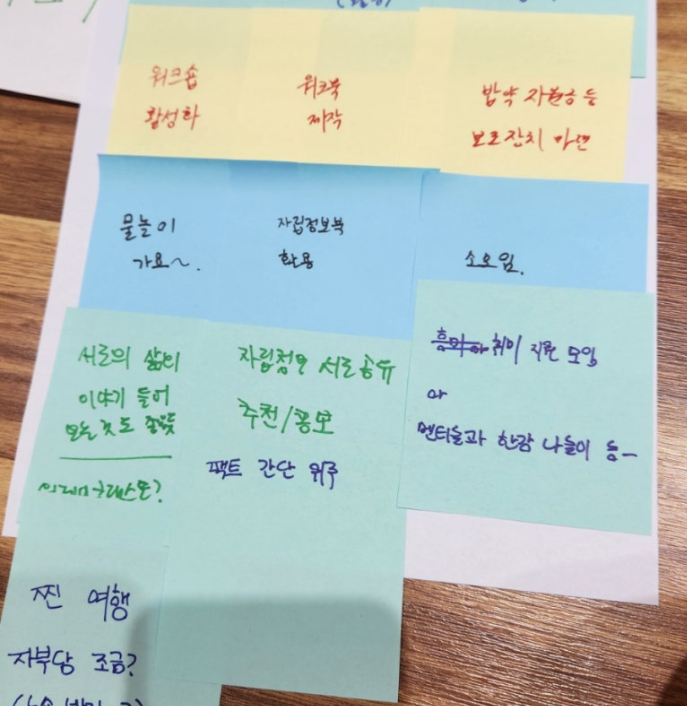 워크숍
활성화
워크북
제작
밥약 지원금 등
보조장치 마련
물놀이
가요~.
자립정보북
활용
소모임.
서로의 삶의
이야기 들어
보는 것도 좋을듯
자립정보 서로 공유
추천/공모
팩트 간단 위주
취미 지원 모임
or
멘티들과 한강 나들이 등
찐 여행
자부담 조금?